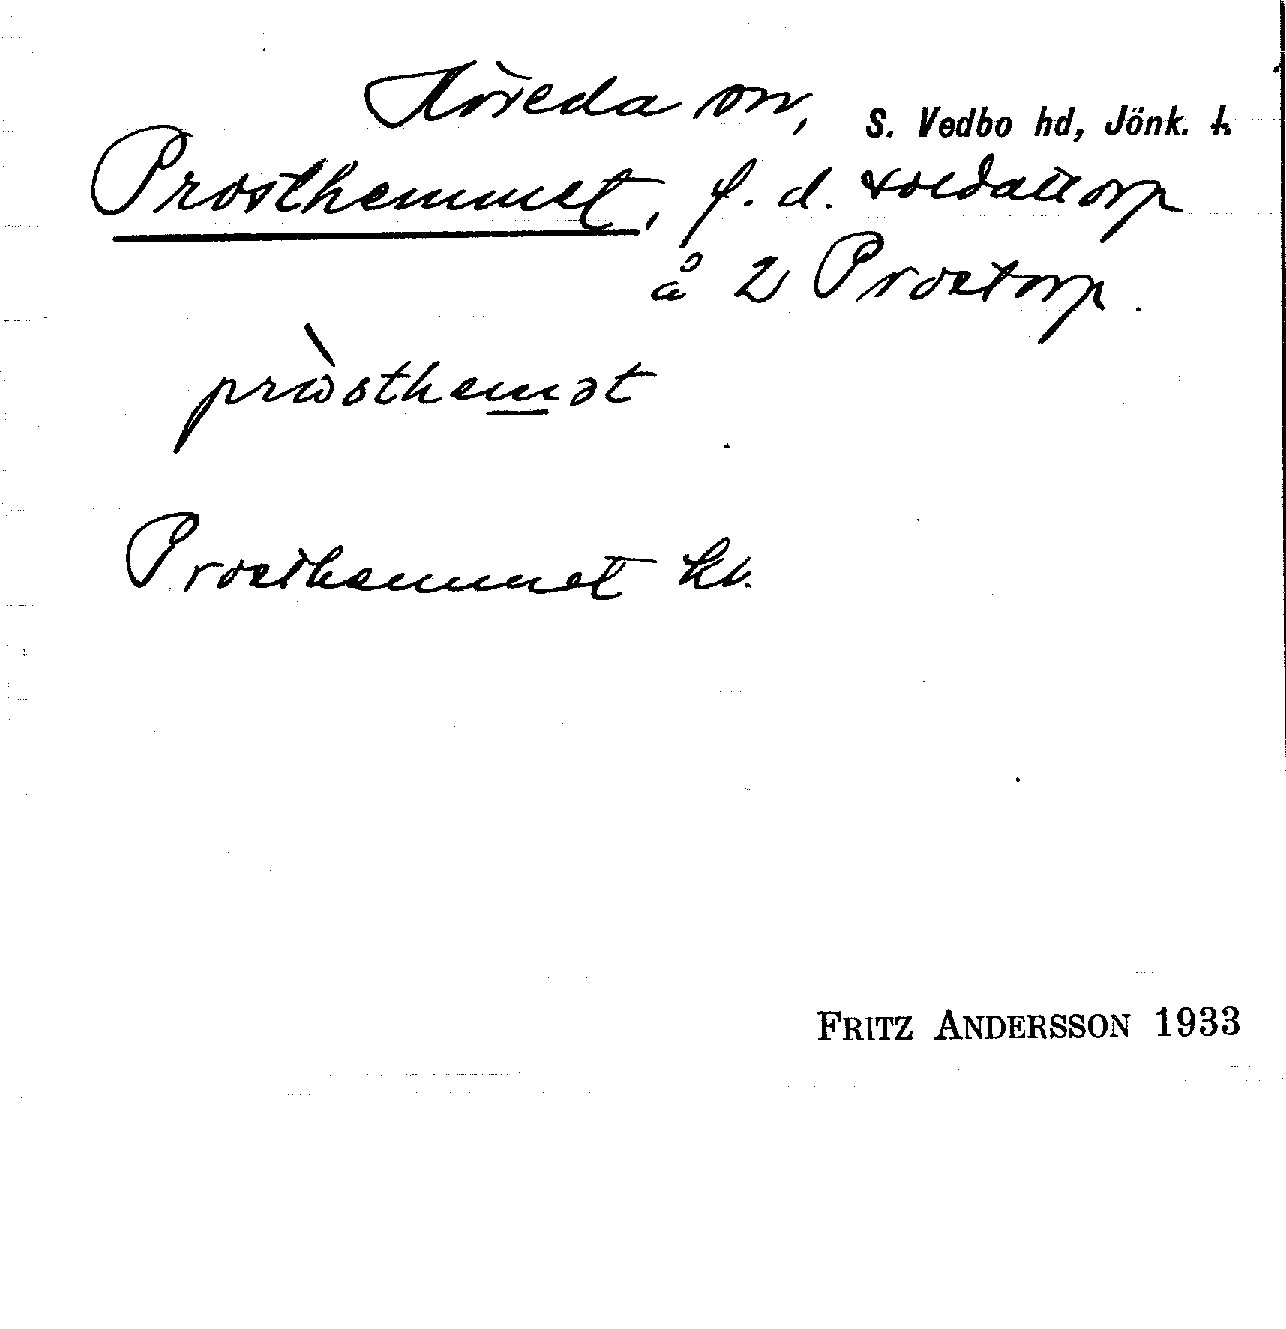 Höreda sn, S. Vedbo hd, Jönk. l.
Prosthemmet, f. d. soldattorp
å 2 Prostorp.
pròsthemət
Prosthemmet kk.
FRITZ ANDERSSON 1933